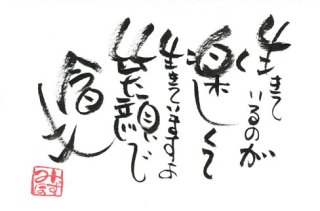 生きて
いるのが
楽しくて
生きていますよ
笑顔で
今日も